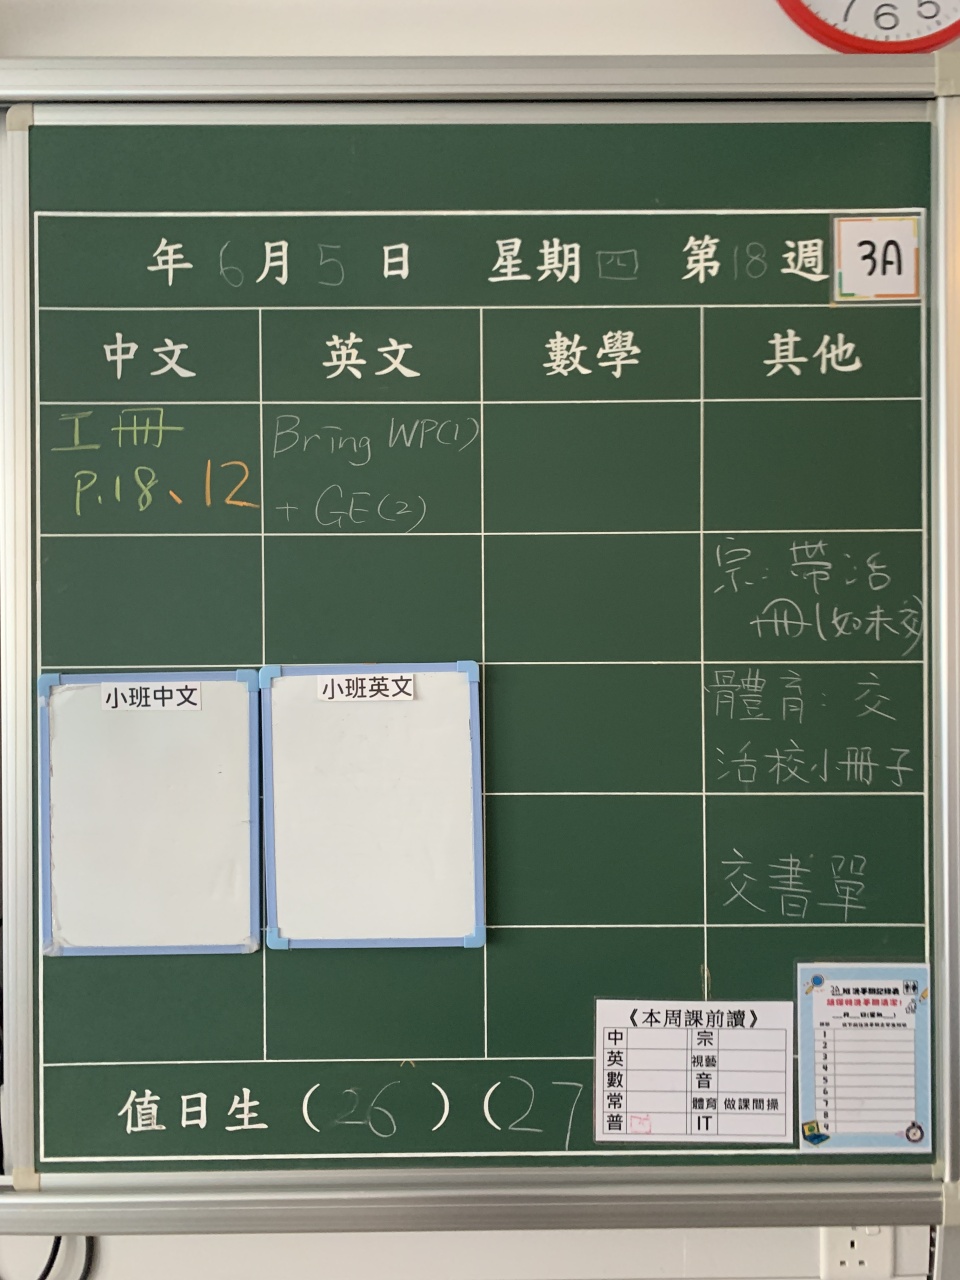 7 6 5
年 6 月 5 日 星期 四 第 18 週 3A
中文 英文 數學 其他
工冊
P.18、12
Bring WP(1)
+ GE(2)
宗: 帶活
冊(如未交)
體育: 交
活校小冊子
交書單
小班中文
小班英文
《本周課前讀》
中 宗
英 視藝
數 音
常 體育 做課間操
普 IT
3A 班洗手間記錄表
請保持洗手間清潔!
1
2
3
4
5
6
7
8
9
值日生 (26) (27